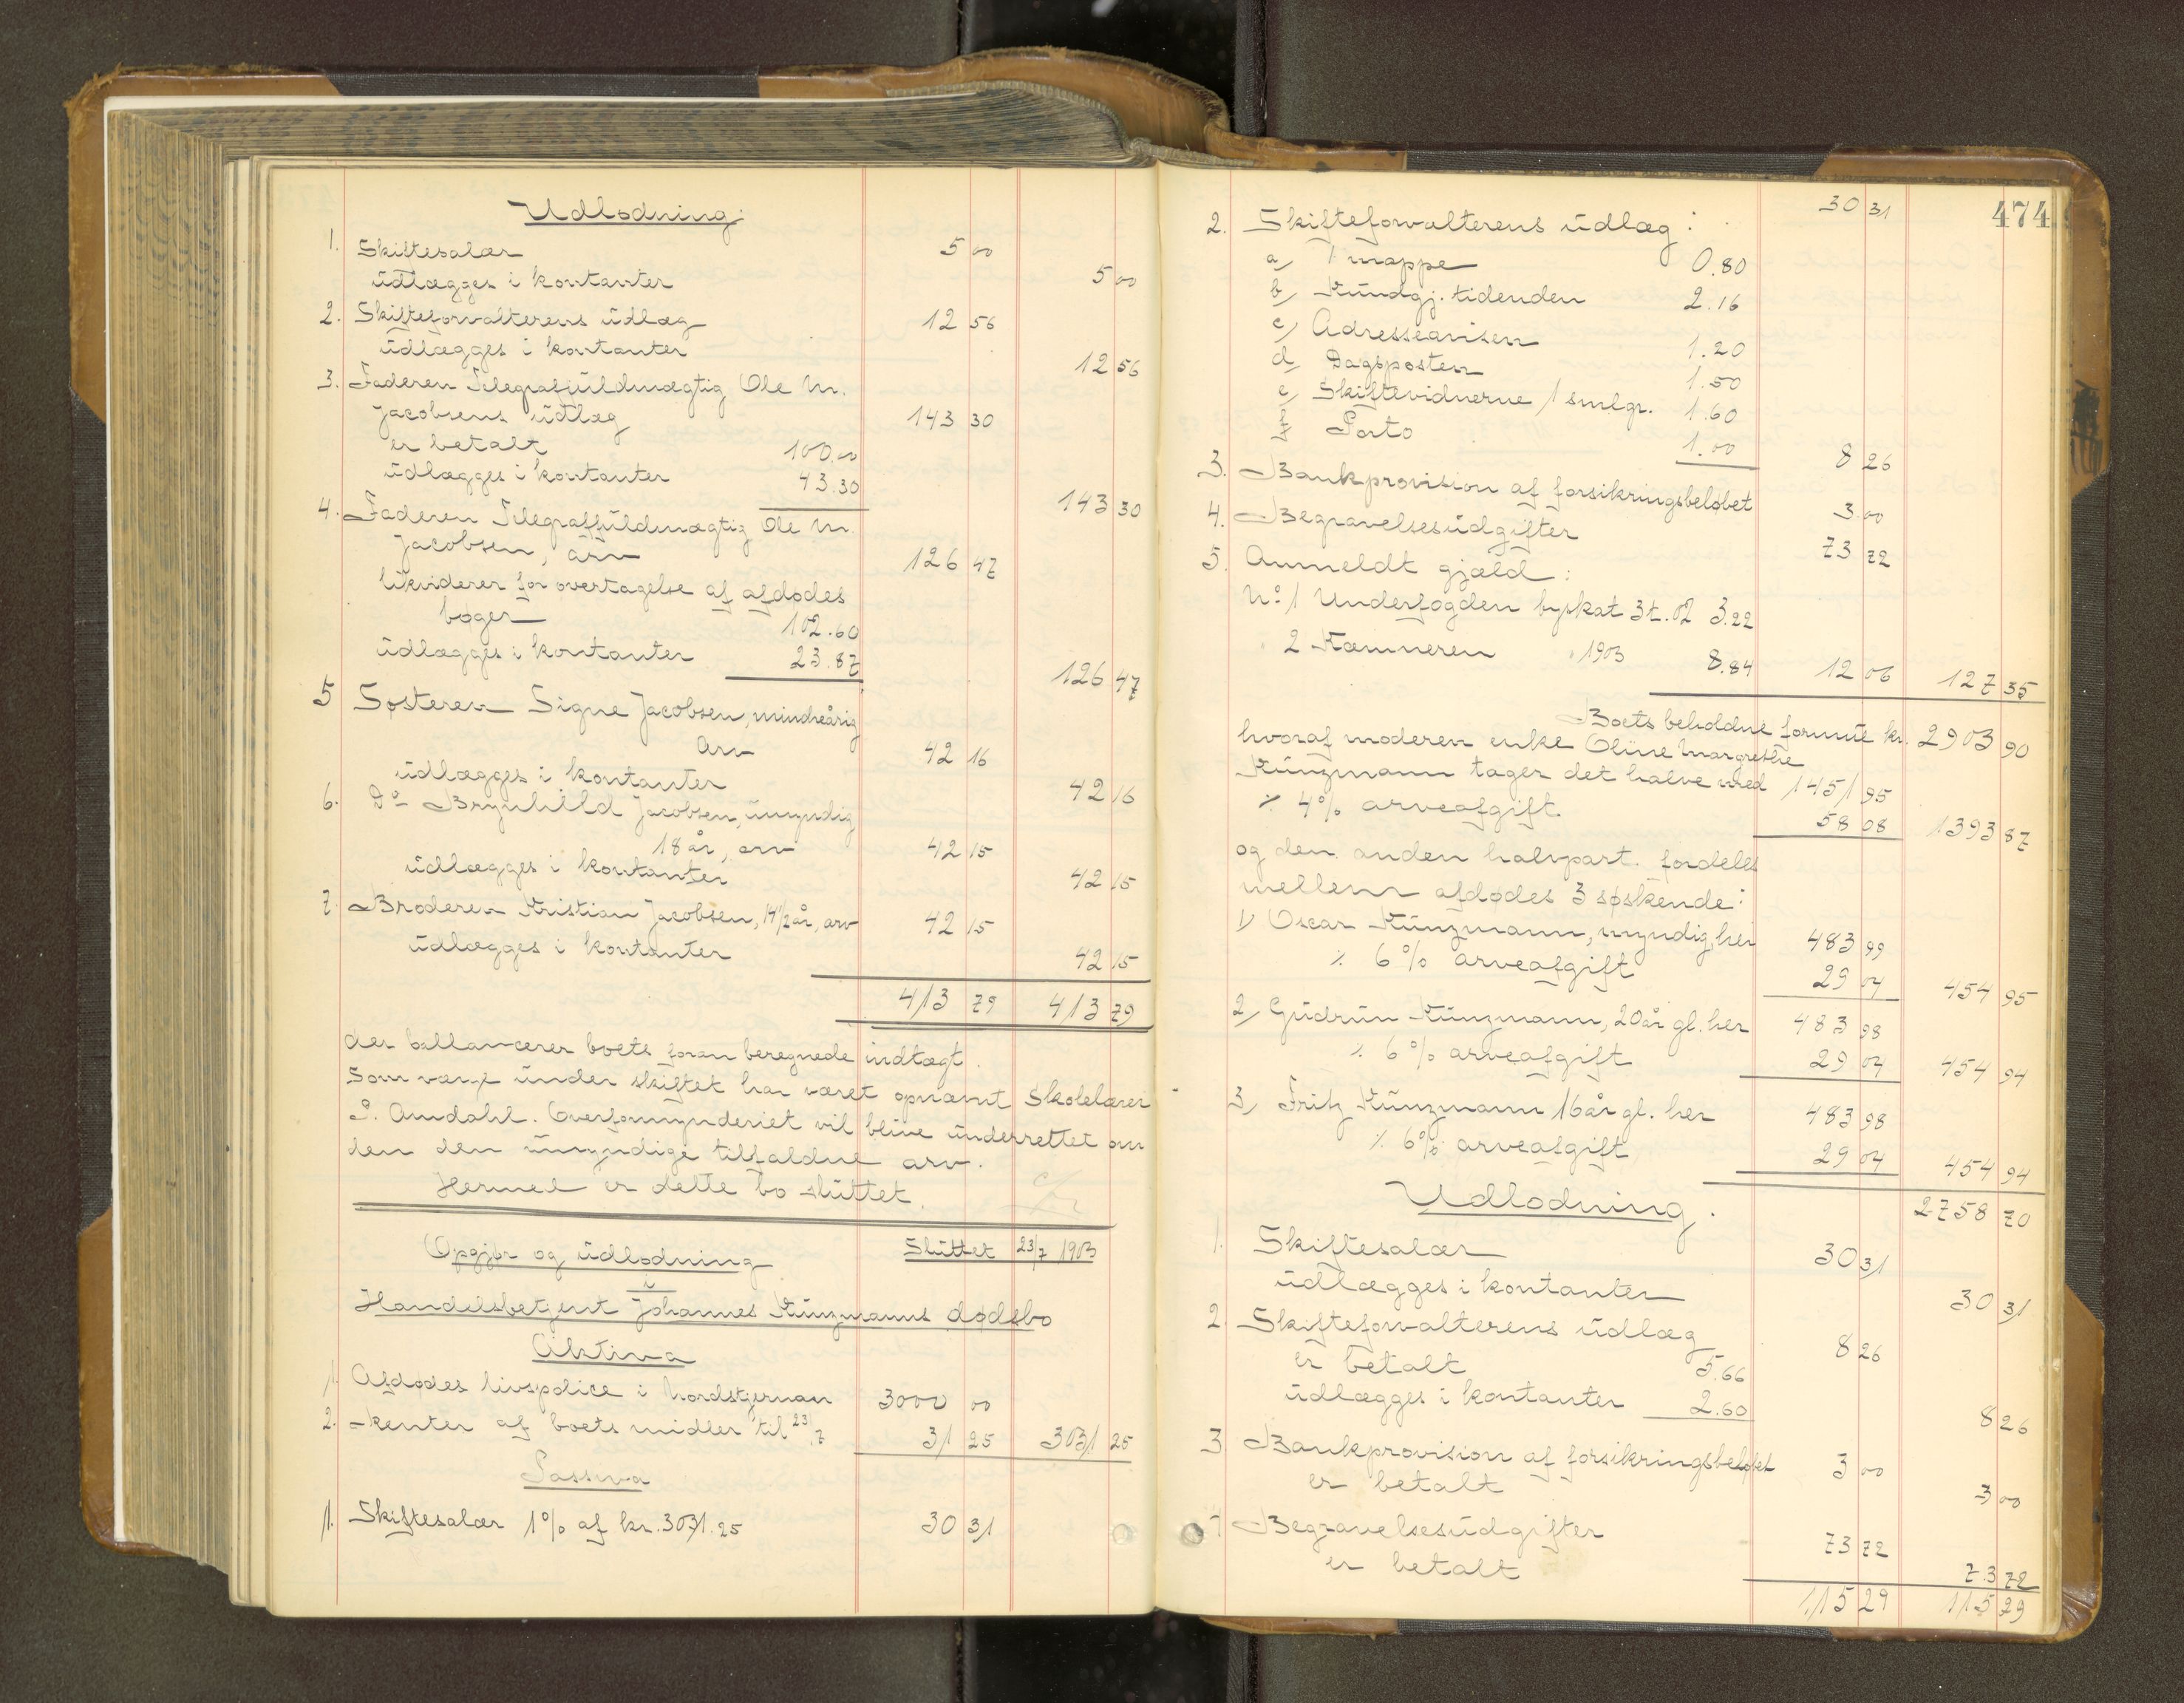 Udlodning:
1. Skiftesalær 5 00
udlægges i kontanter 5 00
2. Skifteforvalterens udlæg 12 56
udlægges i kontanter 12 56
3. Faderen Telegraffuldmægtig Ole M.
Jacobsens udlæg 143 30
er betalt 100.00
udlægges i kontanter 43.30 143 30
4. Faderen Telegraffuldmægtig Ole M.
Jacobsen, arv 126 47
likviderer for overtagelse af afdødes
bøger 102.60
udlægges i kontanter 23.87 126 47
5 Søsteren Signe Jacobsen, mindreårig
arv 42 16
udlægges i kontanter 42 16
6. Do Brynhild Jacobsen, umyndig
18 år, arv 42 15
udlægges i kontanter 42 15
7. Broderen Kristian Jacobsen, 14 1/2 år, arv 42 15
udlægges i kontanter 42 15
413 79 413 79
der ballancerer boets foran beregnede indtægt.
Som værge under skiftet har været opnævnt Skolelærer
P. Amdahl. Overformynderiet vil blive underrettet om
den den umyndige tilfaldne arv.
Hermed er dette bo sluttet.
Opgjør og udlodning Sluttet 23/7 1903
i
Handelsbetjent Johannes Künzmanns dødsbo
Aktiva
1. Afdødes livspolice i Nordstjernan 3000 00
2. Renter af boets midler til 23/7 31 25 3031 25
Passiva
1. Skiftesalær 1% af kr. 3031.25 30 31
30 31 474
2. Skifteforvalterens udlæg:
a/ 1 mappe 0.80
b/ Kundgj. tidenden 2.16
c/ Adresseavisen 1.20
d/ Dagsposten 1.50
e/ Skiftevidnerne 1 smlgr. 1.60
f/ Porto 1.00 8 26
3. Bankprovision af forsikringsbeløbet 3 00
4. Begravelsesudgifter 73 72
5. Anmeldt gjæld:
No 1 Underfogden byskat 3 t. 02 3.22
" 2 Kæmneren " 1903 8.84 12 06 127 35
Boets beholdne formue kr. 2903 90
hvoraf moderen enke Oline Margrethe
Künzmann tager det halve med 1451 95
% 4% arveafgift 58 08 1393 87
og den anden halvpart fordeles
mellem afdødes 3 søskende:
1/ Oscar Künzmann, myndig, her 483 99
% 6% arveafgift 29 04 454 95
2/ Gudrun Künzmann, 20 år gl. her 483 98
% 6% arveafgift 29 04 454 94
3/ Fritz Künzmann 16 år gl. her 483 98
% 6% arveafgift 29 04 454 94
Udlodning. 2758 70
1. Skiftesalær 30 31
udlægges i kontanter 30 31
2. Skifteforvalterens udlæg 8 26
er betalt 5.66
udlægges i kontanter 2.60 8 26
3 Bankprovision af forsikringsbeløbet 3 00
er betalt 3 00
4 Begravelsesudgifter 73 72
er betalt 73 72
115 29 115 29